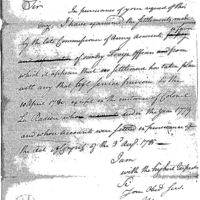 Sir
In pursuance of your request of this
day, I have examined the Settlements made
by the late Commissioner of Army Accounts,
of sundry Foreign Officers and from
which it appears that no Settlement has taken place
with any that for Service previous to the
1780 except in the instance of Colonel
La Radiere who under the year 1779
and whose Accounts were settled in pursuance of
the Act of Congress of the 3d Augt. 178
I am
with the highest Respect
Sir
Your Obed. Servt.